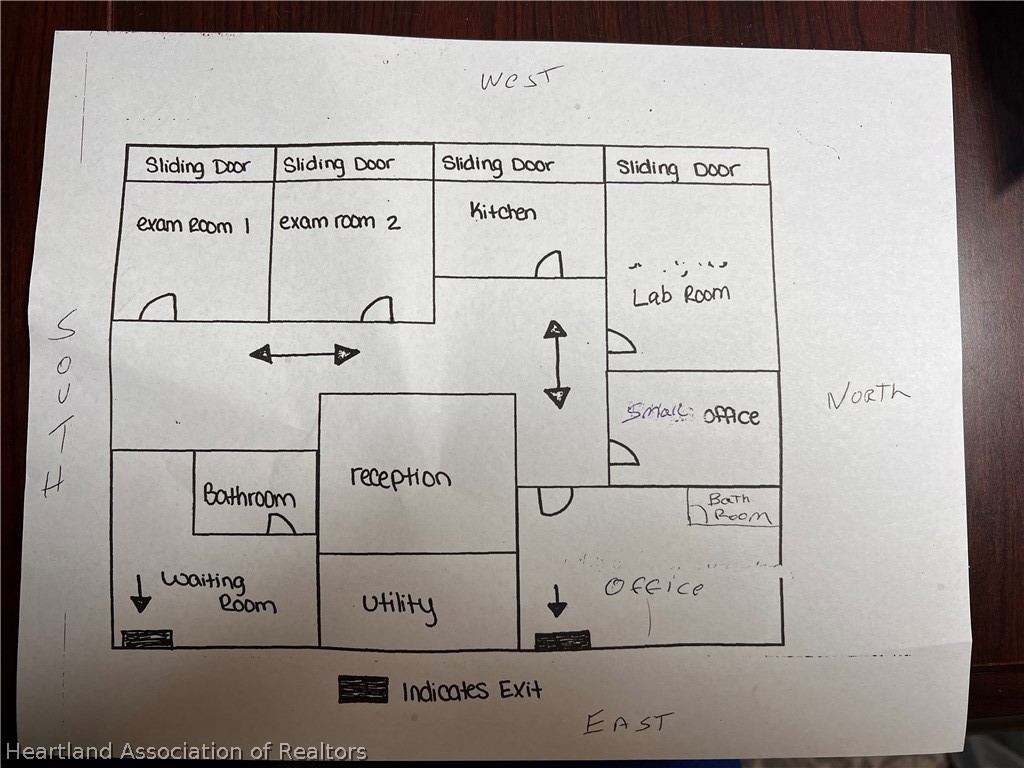 West
Sliding Door
Sliding Door
Sliding Door
Sliding Door
exam Room 1
exam room 2
Kitchen
Lab Room
SOUTH
NORTH
Small office
reception
Bathroom
Bath
Room
Waiting
Room
utility
OFFICE
Indicates Exit
EAST
Heartland Association of Realtors